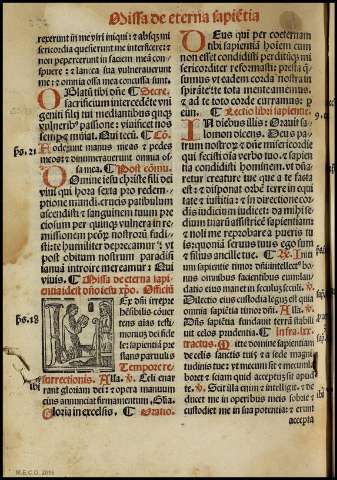 Missa de eterna sapiētia
rexerunt in me viri iniqui: ⁊ absqȝ mi
sericordia quesierunt me interficere: ⁊
non pepercerunt in faciem meā con-
spuere: ⁊ lancea sua vulnerauerunt
me: ⁊ dinumerata oīa ossa mea concussa sunt.
Oblatū tibi dn̄e ¶ Secre.
sacrificium intercedēte vni
geniti filij tui
passione: viuificet nos
semꝑ ⁊ muniat. Qui tecū. ¶ Cō.
ps. 21
Foderunt manus meas ⁊ pedes
meos: ⁊ dinumerauerunt omnia os-
sa mea. ¶ Post cōmu.
Domine iesu christe fili dei
viui qui hora sexta pro redem-
ptione mundi: crucis patibulum
ascendisti: ⁊ sanguinem tuum pre
ciosum ꝑ quinqȝ vulnera in
remissionem pctōꝝ nostroꝝ fudi-
sti: te humiliter deprecamur: vt
post obitum nostrum paradisi
ianuā introire mereamur: Qui
viuis. ¶ Missa de eterna sapi-
entia: idest dn̄o iesu xp̄o. Officiū
ps. 18
Lex dn̄i irrepre
hēsibilis: cōuer
tens aīas: testi
moniuȝ dei fide
le: sapientiā pre
stans paruulis
Tempore re-
surrectionis. Alla. v̄. Celi enar
rant gloriam dei: ⁊ opera manuum
eius annunciat firmamentum. Glia.
Gloria in excelsis. ¶ Oratio.
Deus qui per coeternam
tibi sapientiā hoīem cum
non esset condidisti: perditūqȝ mi
sericorditer reformasti: presta q̄-
sumus vt eadem corda nostra in
spirāte: te tota mente amemus:
⁊ ad te toto corde curramus. ꝑ
eun. ¶ Lectio libri sapientie.
In diebus illis: Orauit sa-
lomon dicens. Deus pa-
trum nostroꝝ: ⁊ dn̄e misericordie
qui fecisti oīa verbo tuo: ⁊ sapien
tia constituisti hominem. vt dn̄a-
retur creature tue que a te facta
est: ⁊ disponat orbē terre in equi
tate ⁊ iustitia: ⁊ in directione cor-
dis iudicium iudicet: da mihi se
dium tuarū assistricē sapientiam:
⁊ noli me reprobare a pueris tu
is: quoniā seruus tuus ego sum
⁊ filius ancille tue. ¶ R̄. Initi
um sapientie timor dn̄i: intellectꝰ bo-
nus omnibus facientibus eum: lau-
datio eius manet in seculuȝ seculi. v̄.
Dilectio eius custodia leguȝ est: quia
omnis sapiētia timor dn̄i. Alla. v̄.
Dn̄s sapiētia fundauit terrā: stabili
uit celos prudentia. ¶ Infra. lxx.
tractus. Mitte domine sapientiam
de celis sanctis tuis: ⁊ a sede magni
tudinis tue: vt mecum sit ⁊ mecum la-
boret: ⁊ sciam quid acceptuȝ sit apud
te. v̄. Scit illa enim ⁊ intelligit: ⁊ de
ducet me in operibus meis sobrie ⁊
custodiet me in sua potentia: ⁊ erunt
accepta
M.E.C.D. 2016